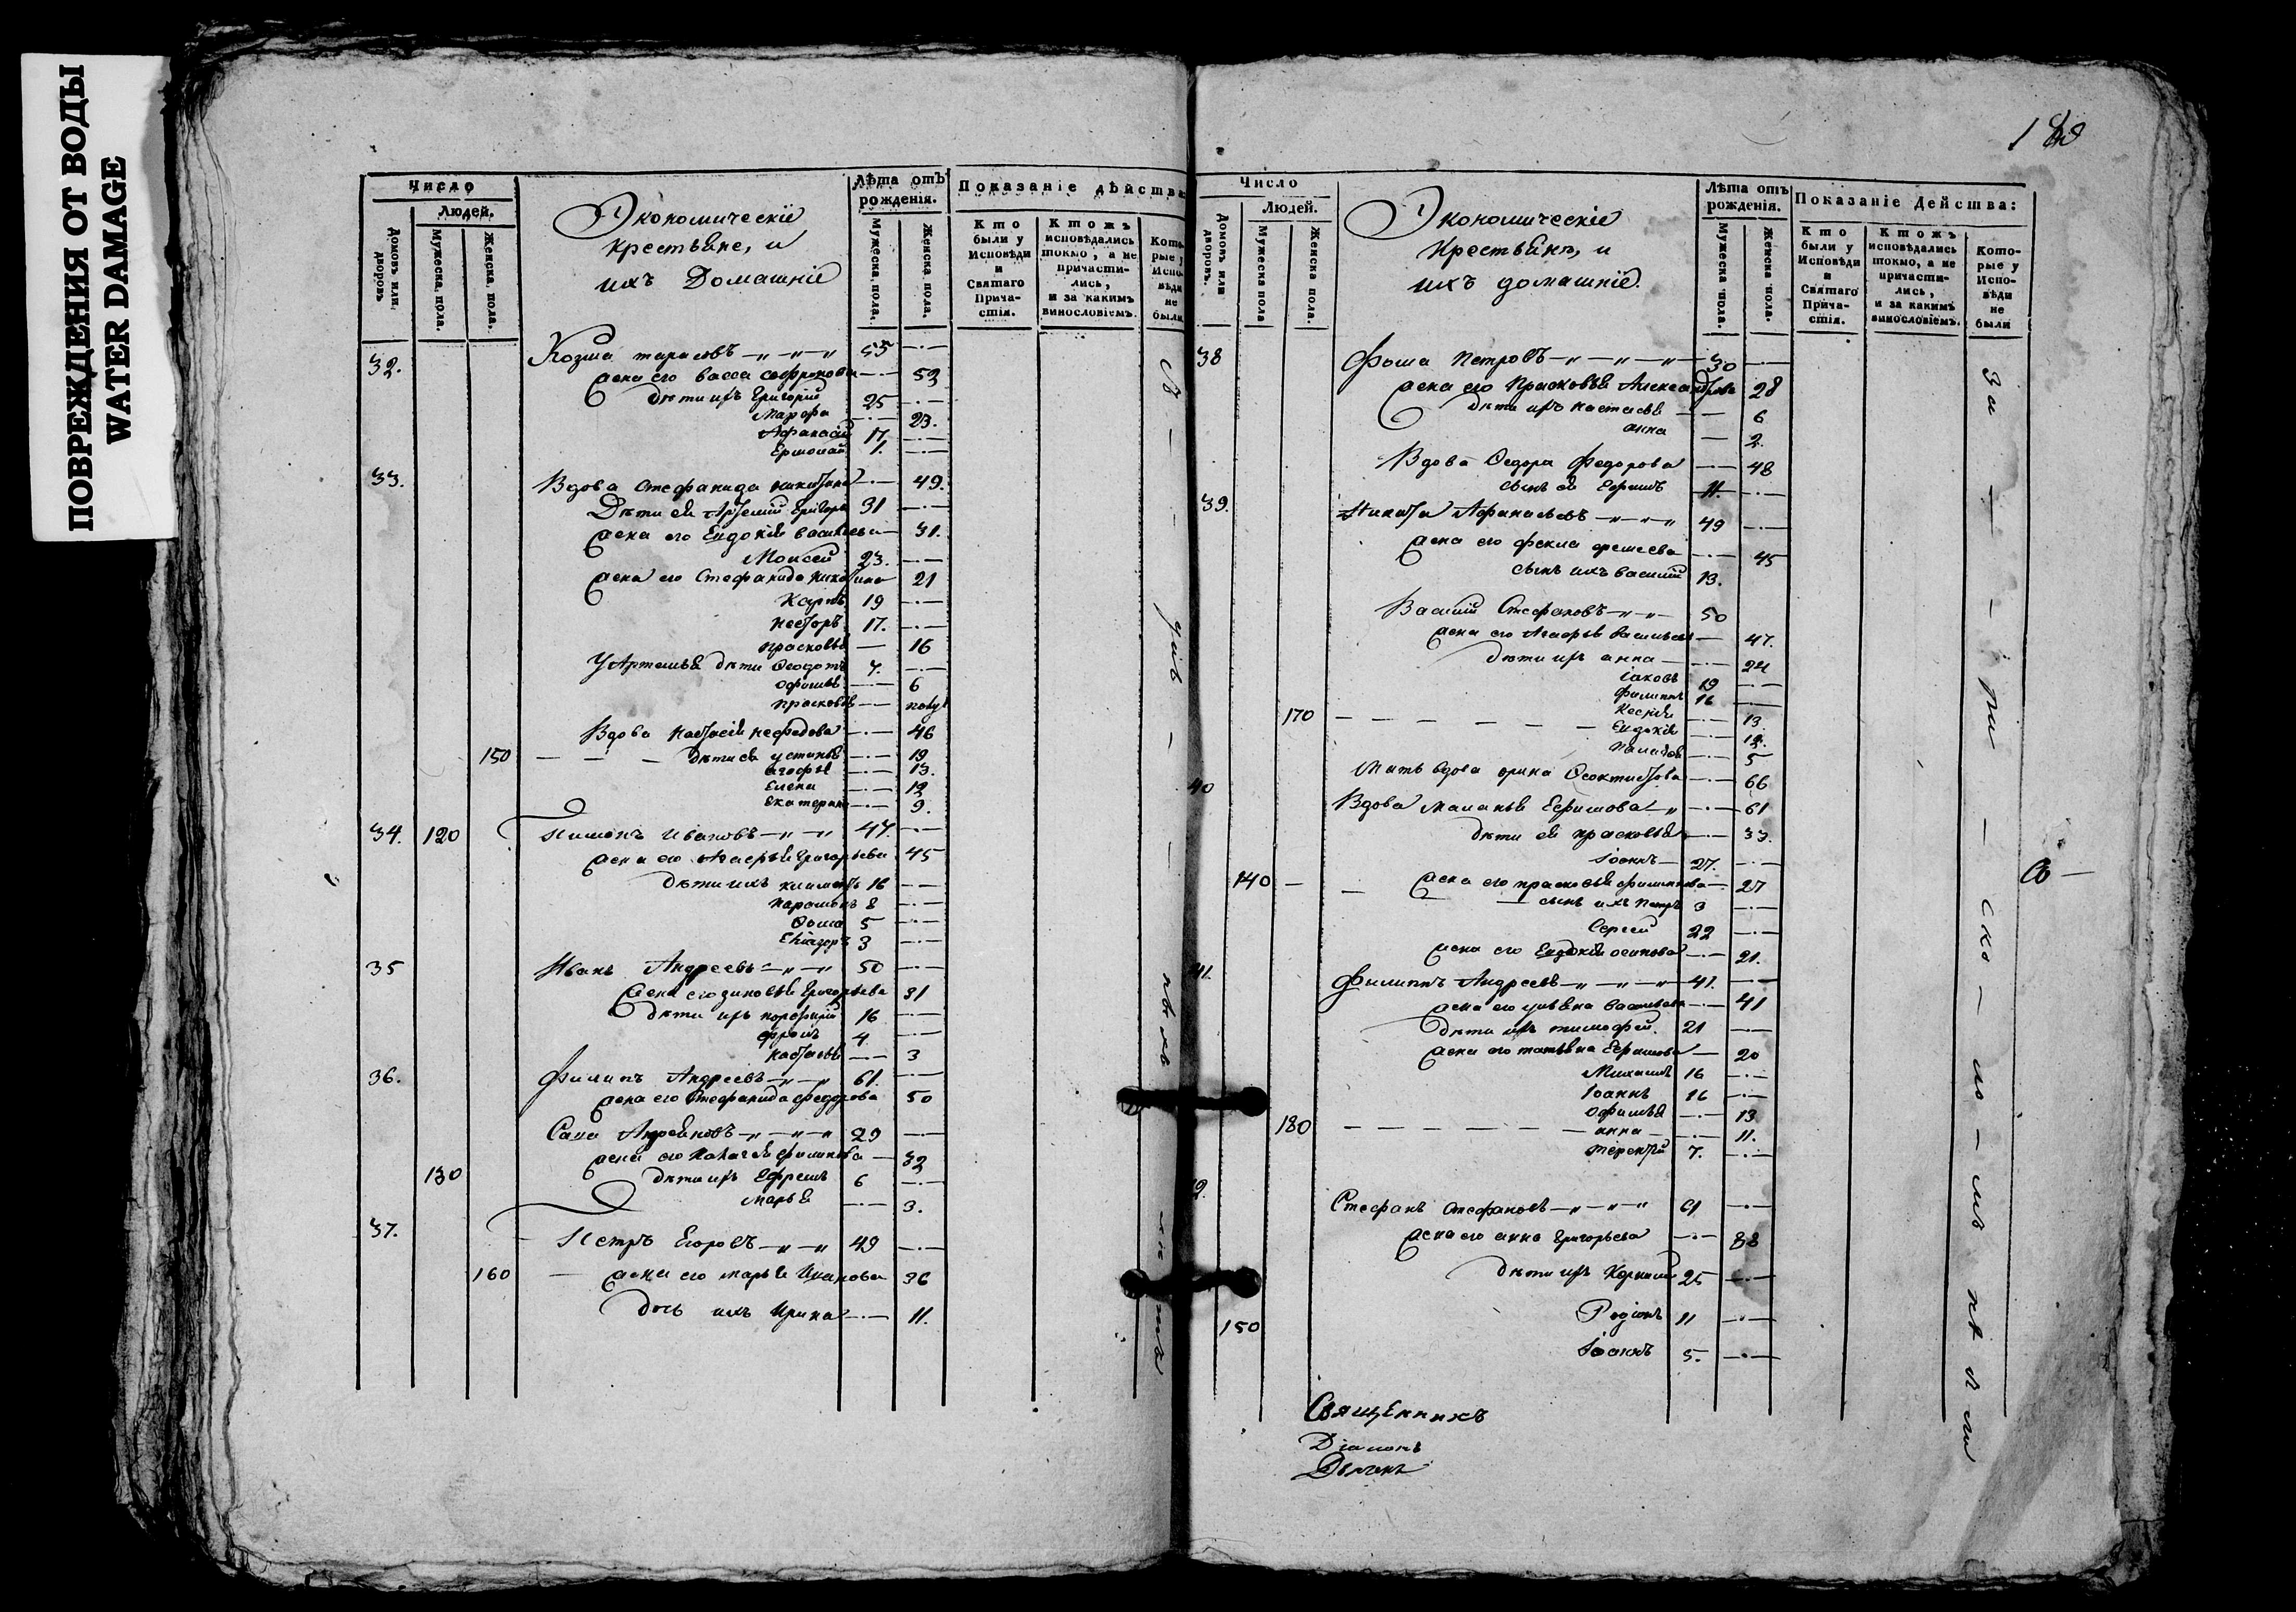 ПОВРЕЖДЕНИЯ ОТ ВОДЫ
WATER DAMAGE
Число
Людей.
Домовъ или дворовъ
Мужеска пола.
Женска пола.
Экономическіе
крестьяне, и
ихъ Домашніе
Лѣта отъ рожденія.
Мужеска пола.
Женска пола.
Показаніе дѣйства
Кто были у Исповѣди и Святаго Прича-стія.
Ктожъ исповѣдались токмо, а не причасти-лись, и за какимъ винословіемъ.
Кото-рые у Испо-вѣди не были
32. Козма тарасовъ 55
жена его васса софронова 52
дѣти ихъ Григорій 25
Марфа 23.
Афанасій 17
Ермолай 1.
33. Вдова Стефанида никитина 49.
Дѣти ея Артемий Григорьевъ 31
жена его Евдокія васильева 31.
Моисей 23.
жена его Стефанида никитина 21
Карпъ 19
несторъ 17.
прасковья 16
У Артемья дѣти Ѳеодотъ 7.
офимья 6
прасковья
Вдова настасія нефедова 46
150 дѣти ея устинья 19
агафья 13.
Елена 12
Екатерина 9.
34. 120 Пименъ Ивановъ 47.
жена его Агафья Григорьева 45
дѣти ихъ климентъ 16
парамонъ 8
Ѳома 5
3
35 Иванъ Андреевъ 50
жена его зиновья Григорьева 31
дѣти ихъ порфирій 16
4
настасья 3
36. Филипъ Андреевъ 61.
жена его Стефанида федорова 50
Сава Андреяновъ 29
жена его Пелагея филипова 32
130 дѣти ихъ Ефремъ 6
Марья 3.
37. Петръ Егоровъ 49
160 жена его марья Иванова 36
дочь ихъ Ирина 11.
Число
Людей.
Домовъ или дворовъ.
Мужеска пола
Женска пола
Экономическіе
Крестьянъ, и
ихъ домашніе.
Лѣта отъ рожденія.
Мужеска пола.
Женска пола.
Показаніе Действа:
Кто были у Исповѣди и Святаго Прича-стія.
Ктожъ исповѣдались токмо, а не причасти-лись, и за какимъ винословіемъ.
Кото-рые у Испо-вѣди не были
38 Фома Петровъ 30
жена его Прасковья Александрова 28
дѣти ихъ настасья 6
анна 2.
Вдова Ѳедора Федорова 48
сынъ ея Ефимъ 11.
39. Никита Афанасьевъ 49
жена его фекла 45
сынъ ихъ василій 13.
Василій Стефановъ 50
жена его Агафья васильева 47.
дѣти ихъ анна 24
іаковъ 19
филиппъ 16
170 Ксенія 13
Евдокія 12.
5
Мать вдова орина Ѳеоктистова 66
40 Вдова маланья Ефимова 61
дѣти ея прасковья 33.
іоаннъ 27.
140 жена его прасковья филипова 27
сынъ ихъ Петръ 3
Сергей 22
жена его Евдокія осипова 21.
41. Филиппъ Андреевъ 41.
жена его ульяна васильева 41
дѣти ихъ тимофей. 21
жена его татьяна Ефимова 20
Михаилъ 16
Іоаннъ 16
офимья 13
180 анна 11.
терентій 7.
Стефанъ Стефановъ 61
жена его анна Григорьева
дѣти ихъ Корнилій 25
Родіонъ 11
150 Іоаннъ 5.
Священникъ
Діаконъ
за - - - ско - -